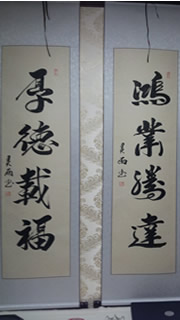 鴻業騰達
厚德載福